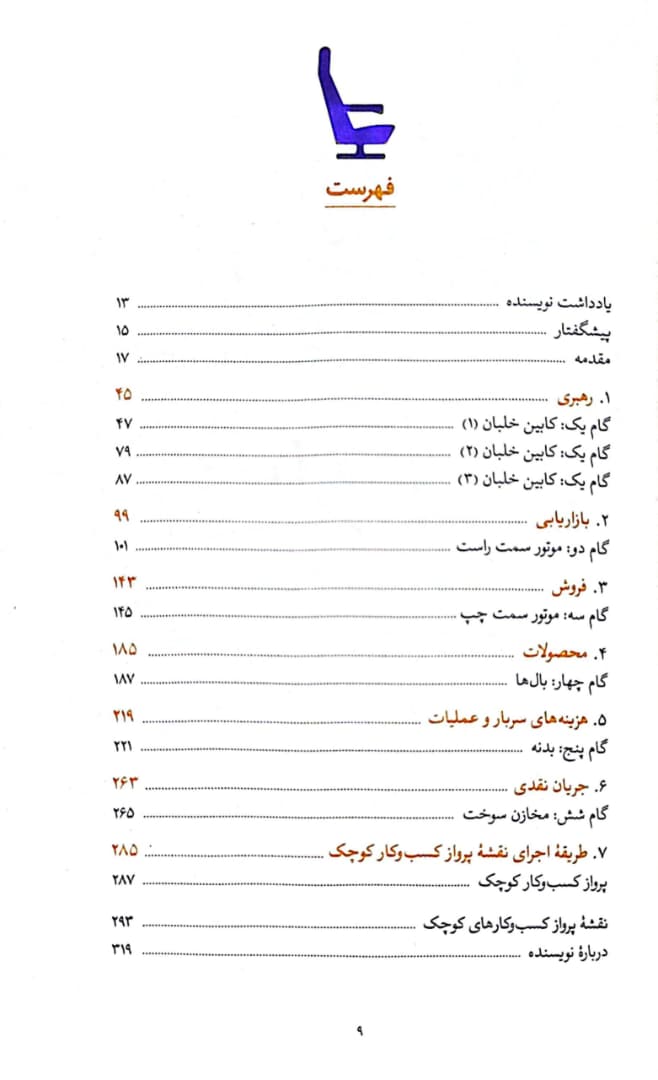 فهرست
یادداشت نویسنده ........ ۱۳
پیشگفتار ........ ۱۵
مقدمه ........ ۱۷
۱. رهبری ........ ۴۵
گام یک: کابین خلبان (۱) ........ ۴۷
گام یک: کابین خلبان (۲) ........ ۷۹
گام یک: کابین خلبان (۳) ........ ۸۷
۲. بازاریابی ........ ۹۹
گام دو: موتور سمت راست ........ ۱۰۱
۳. فروش ........ ۱۴۳
گام سه: موتور سمت چپ ........ ۱۴۵
۴. محصولات ........ ۱۸۵
گام چهار: بال‌ها ........ ۱۸۷
۵. هزینه‌های سربار و عملیات ........ ۲۱۹
گام پنج: بدنه ........ ۲۲۱
۶. جریان نقدی ........ ۲۶۳
گام شش: مخازن سوخت ........ ۲۶۵
۷. طریقهٔ اجرای نقشهٔ پرواز کسب‌وکار کوچک ........ ۲۸۵
پرواز کسب‌وکار کوچک ........ ۲۸۷
نقشهٔ پرواز کسب‌وکارهای کوچک ........ ۲۹۳
دربارهٔ نویسنده ........ ۳۱۹
۹